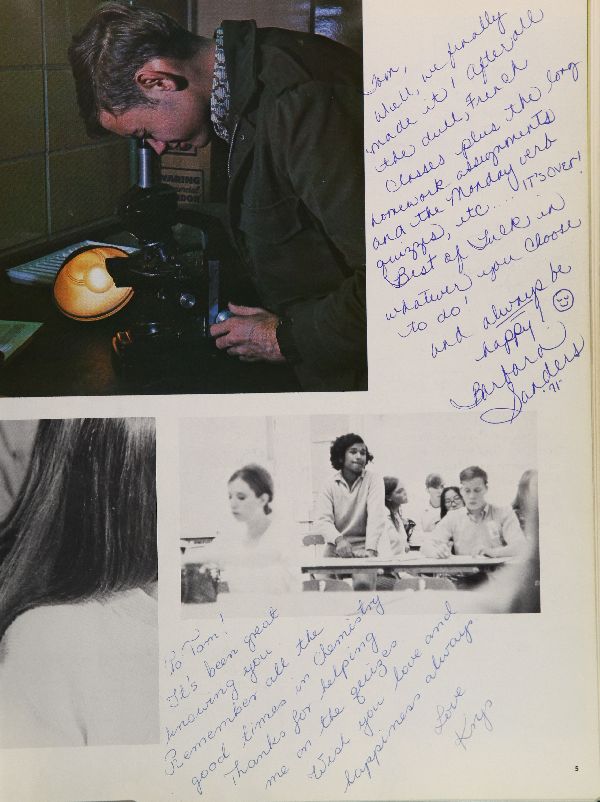 Tom,
Well, we finally
made it! After all
the dull, French
classes plus the long
homework assignments
and the Monday verb
quizzes, etc.... IT'S OVER!
Best of Luck in
whatever you choose
to do!
and always be
happy!
Barbara
Sanders
"71"
WARING
To Tom!
It's been great
knowing you.
Remember all the
good times in Chemistry
Thanks for helping
me in the quizes
Wish you love and
happiness always
Love
Krys
5